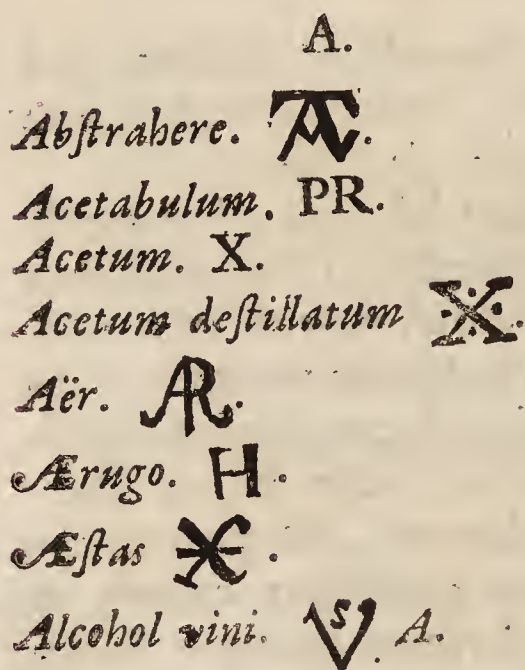 A.
Abſtrahere.
Acetabulum. PR.
Acetum. X.
Acetum deſtillatum
Aër. AR.
Ærugo. H.
Æſtas
Alcohol vini. A.